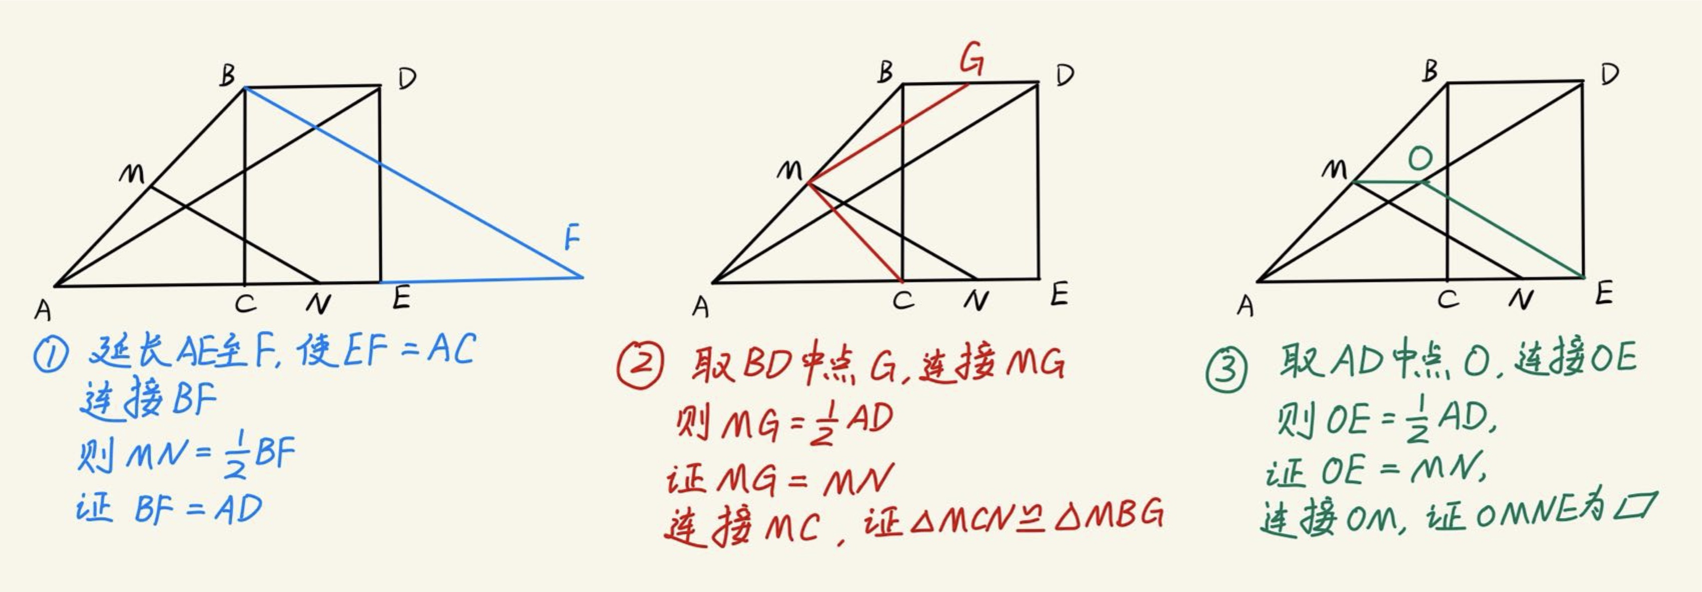 B D
M
F
A C N E
① 延长AE至F, 使EF=AC
连接BF
则MN=½BF
证 BF=AD
G
B D
M
A C N E
② 取BD中点G,连接MG
则MG=½AD
证MG=MN
连接MC,证△MCN≌△MBG
B D
M O
A C N E
③ 取AD中点O,连接OE
则OE=½AD,
证OE=MN,
连接OM,证OMNE为▱